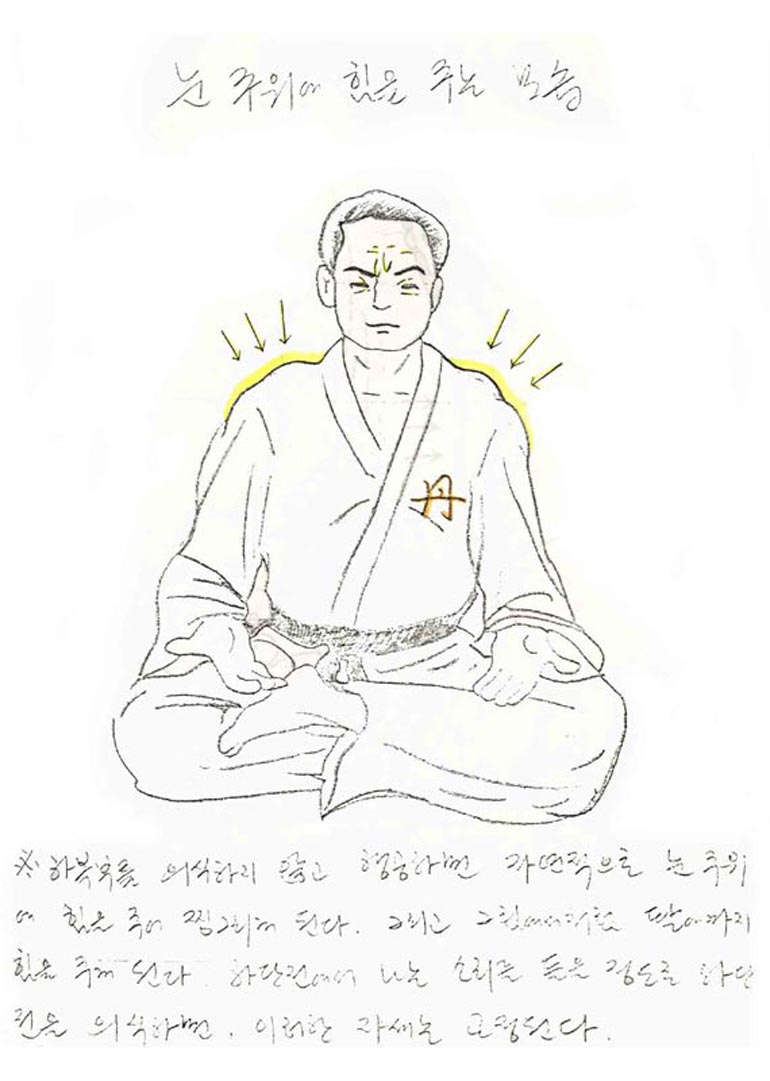 눈 주위에 힘을 주는 모습
丹
※ 하복부를 의식하지 않고 행공하면 자연적으로 눈 주위
에 힘을 주어 찡그리게 된다. 그리고 그림에서처럼 팔에까지
힘을 주게 된다. 하단전에서 나는 소리를 들을 정도로 하단
전을 의식하면, 이러한 자세는 교정된다.